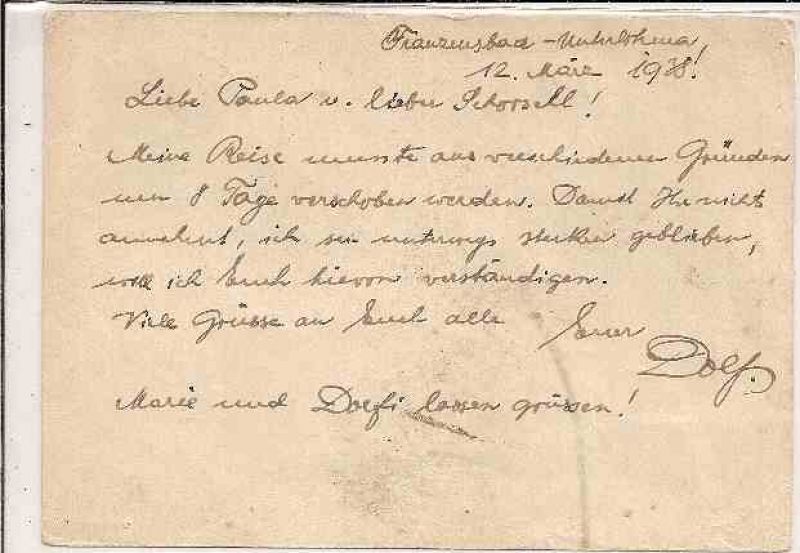 Franzensbad - Unterlohma,
12. März 1938!
Liebe Paula u. lieber Schorschl!
Meine Reise musste aus verschiedenen Gründen
um 8 Tage verschoben werden. Damit Ihr nicht
annehmt, ich sei unterwegs stecken geblieben,
will ich Euch hievon verständigen.
Viele Grüsse an Euch alle Euer
Dolf.
Marie und Dolfi lassen grüssen!